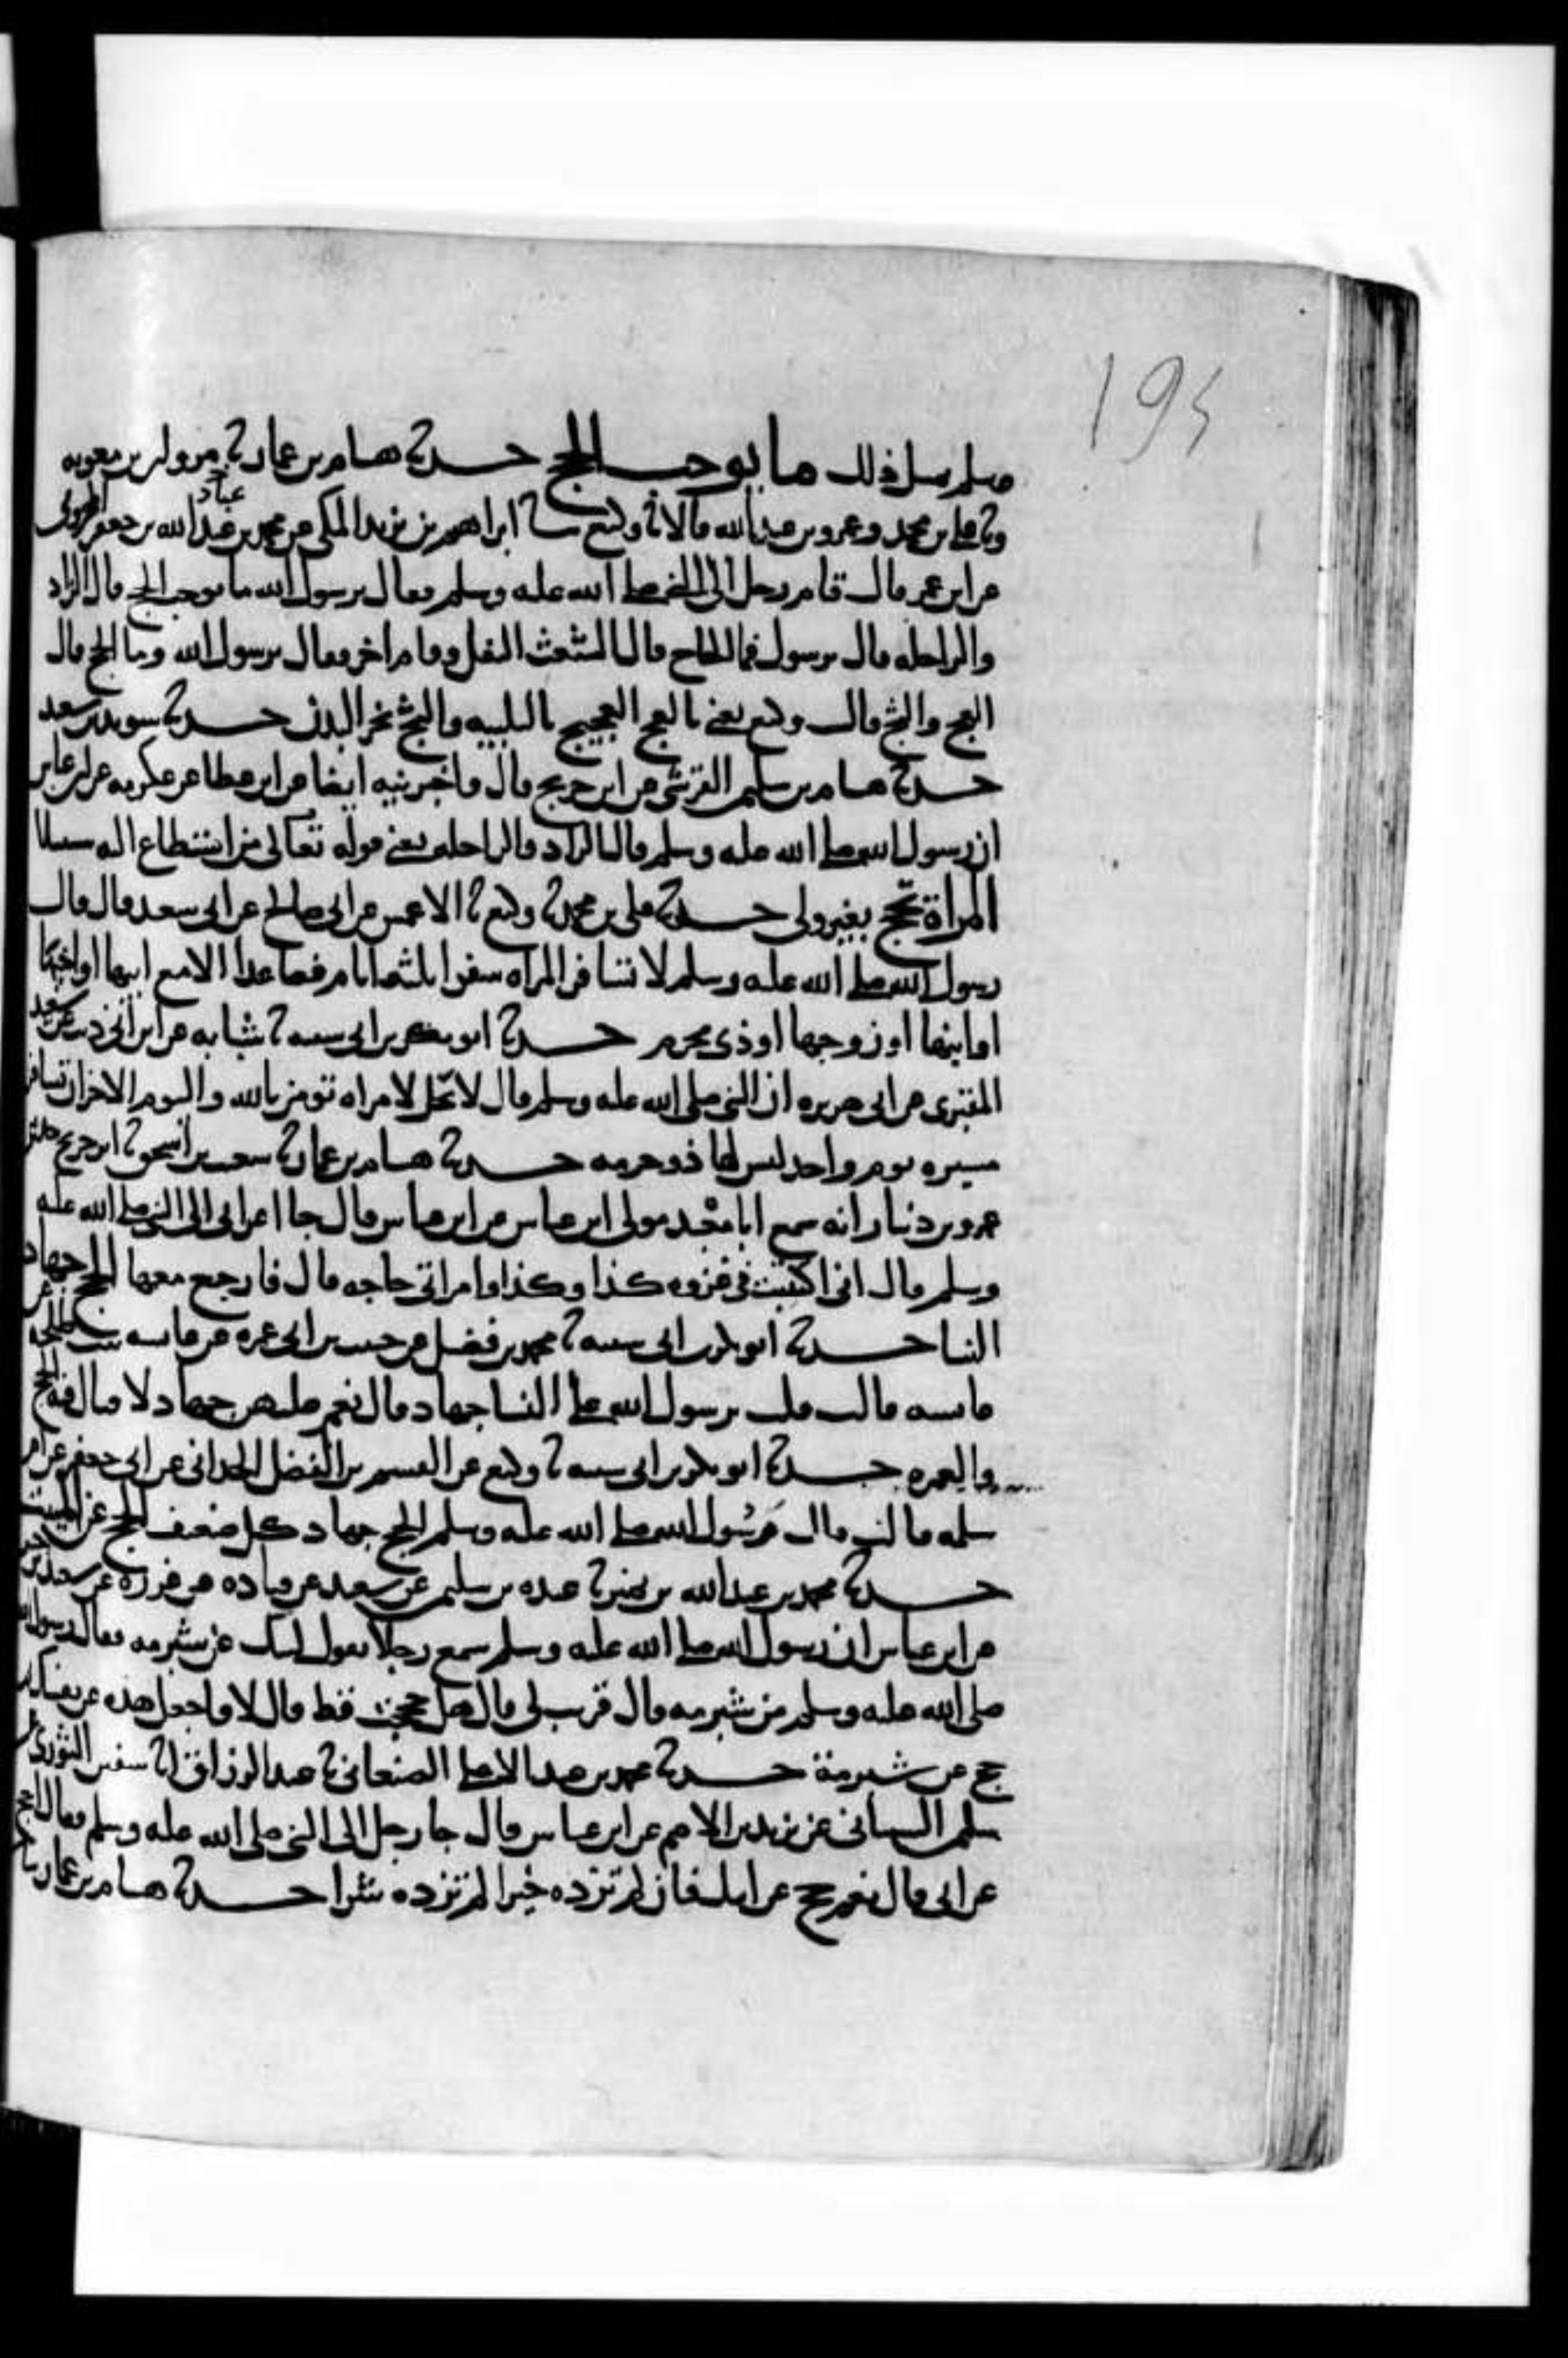 194
وسلم مثل ذلك ما يوجب الحج حدثنا هشام بن عمار ثنا مروان بن معويه
وثنا علي بن محمد وعمرو بن عبد الله قالا ثنا وكيع ثنا ابراهيم بن يزيد المكي عن محمد بن عباد بن جعفر المخزومي
عن ابن عمر قال قام رجل الى النبي صلى الله عليه وسلم فقال يرسول الله ما يوجب الحج قال الزاد
والراحله قال يرسول فما الحاج قال الشعث التفل وقام اخر فقال يرسول الله وما الحج قال
العج والثج قال وكيع يعني بالعج العجيج بالتلبيه والثج نحر البدن حدثنا سويد بن سعيد
حدثنا هشام بن سليمن القرشي عن ابن جريج قال واخبرنيه ايضا عن ابن عطا عن عكرمه عن ابن عباس
ان رسول الله صلى الله عليه وسلم قال الزاد والراحله يعني قوله تعالى من استطاع اليه سبيلا
المراة تحج بغير ولي حدثنا علي بن محمد ثنا وكيع ثنا الاعمش عن ابي صالح عن ابي سعيد قال قال
رسول الله صلى الله عليه وسلم لا تسافر المراه سفرا ثلثه ايام فصاعدا الا مع ابيها او اخيها
او ابنها او زوجها او ذي محرم حدثنا ابو بكر بن ابي شيبه ثنا شبابه عن ابن ابي ذيب عن سعيد
المقبري عن ابي هريره ان النبي صلى الله عليه وسلم قال لا يحل لامراه تومن بالله واليوم الاخر ان تسافر
مسيره يوم واحد ليس لها ذو حرمه حدثنا هشام بن عمار ثنا شعيب بن اسحق ثنا ابن جريج حدثني
عمرو بن دينار انه سمع ابا معبد مولى ابن عباس عن ابن عباس قال جا اعرابي الى النبي صلى الله عليه
وسلم قال اني اكتتبت في غزوه كذا وكذا وامراتي حاجه قال فارجع معها الحج جهاد
النسا حدثنا ابو بكر بن ابي شيبه ثنا محمد بن فضيل عن حبيب بن ابي عمره عن عايشه بنت طلحه عن
عايشه قالت قلت يرسول الله على النسا جهاد قال نعم عليهن جهاد لا قتال فيه الحج
والعمره حدثنا ابو بكر بن ابي شيبه ثنا وكيع عن القسم بن الفضل الحداني عن ابي جعفر عن ام
سلمه قالت قال رسول الله صلى الله عليه وسلم الحج جهاد كل ضعيف الحج عن الميت
حدثنا محمد بن عبد الله بن نمير ثنا عبده بن سليمن عن سعيد عن قتاده عن عزره عن سعيد بن جبير
عن ابن عباس ان رسول الله صلى الله عليه وسلم سمع رجلا يقول لبيك عن شبرمه فقال رسول الله
صلى الله عليه وسلم من شبرمه قال قريب لي قال هل حججت قط قال لا فاجعل هذه عن نفسك ثم
حج عن شبرمة حدثنا محمد بن عبد الاعلى الصنعاني ثنا عبد الرزاق انا سفين الثوري عن
سليمن الشيباني عن يزيد بن الاصم عن ابن عباس قال جا رجل الى النبي صلى الله عليه وسلم فقال احج
عن ابي قال نعم حج عن ابيك فان لم تزده خيرا لم تزده شرا حدثنا هشام بن عمار ثنا